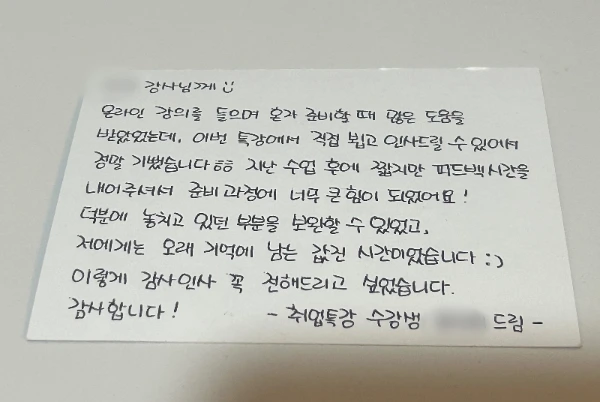 강사님께 :)
온라인 강의를 들으며 혼자 준비할 때 많은 도움을
받았었는데, 이번 특강에서 직접 뵙고 인사드릴 수 있어서
정말 기뻤습니다ㅎㅎ 지난 수업 후에 짧지만 피드백시간을
내어주셔서 준비과정에 너무 큰 힘이 되었어요!
덕분에 놓치고 있던 부분을 보완할 수 있었고,
저에게는 오래 기억에 남는 값진 시간이었습니다 :)
이렇게 감사인사 꼭 전해드리고 싶었습니다.
감사합니다! - 취업특강 수강생 드림 -